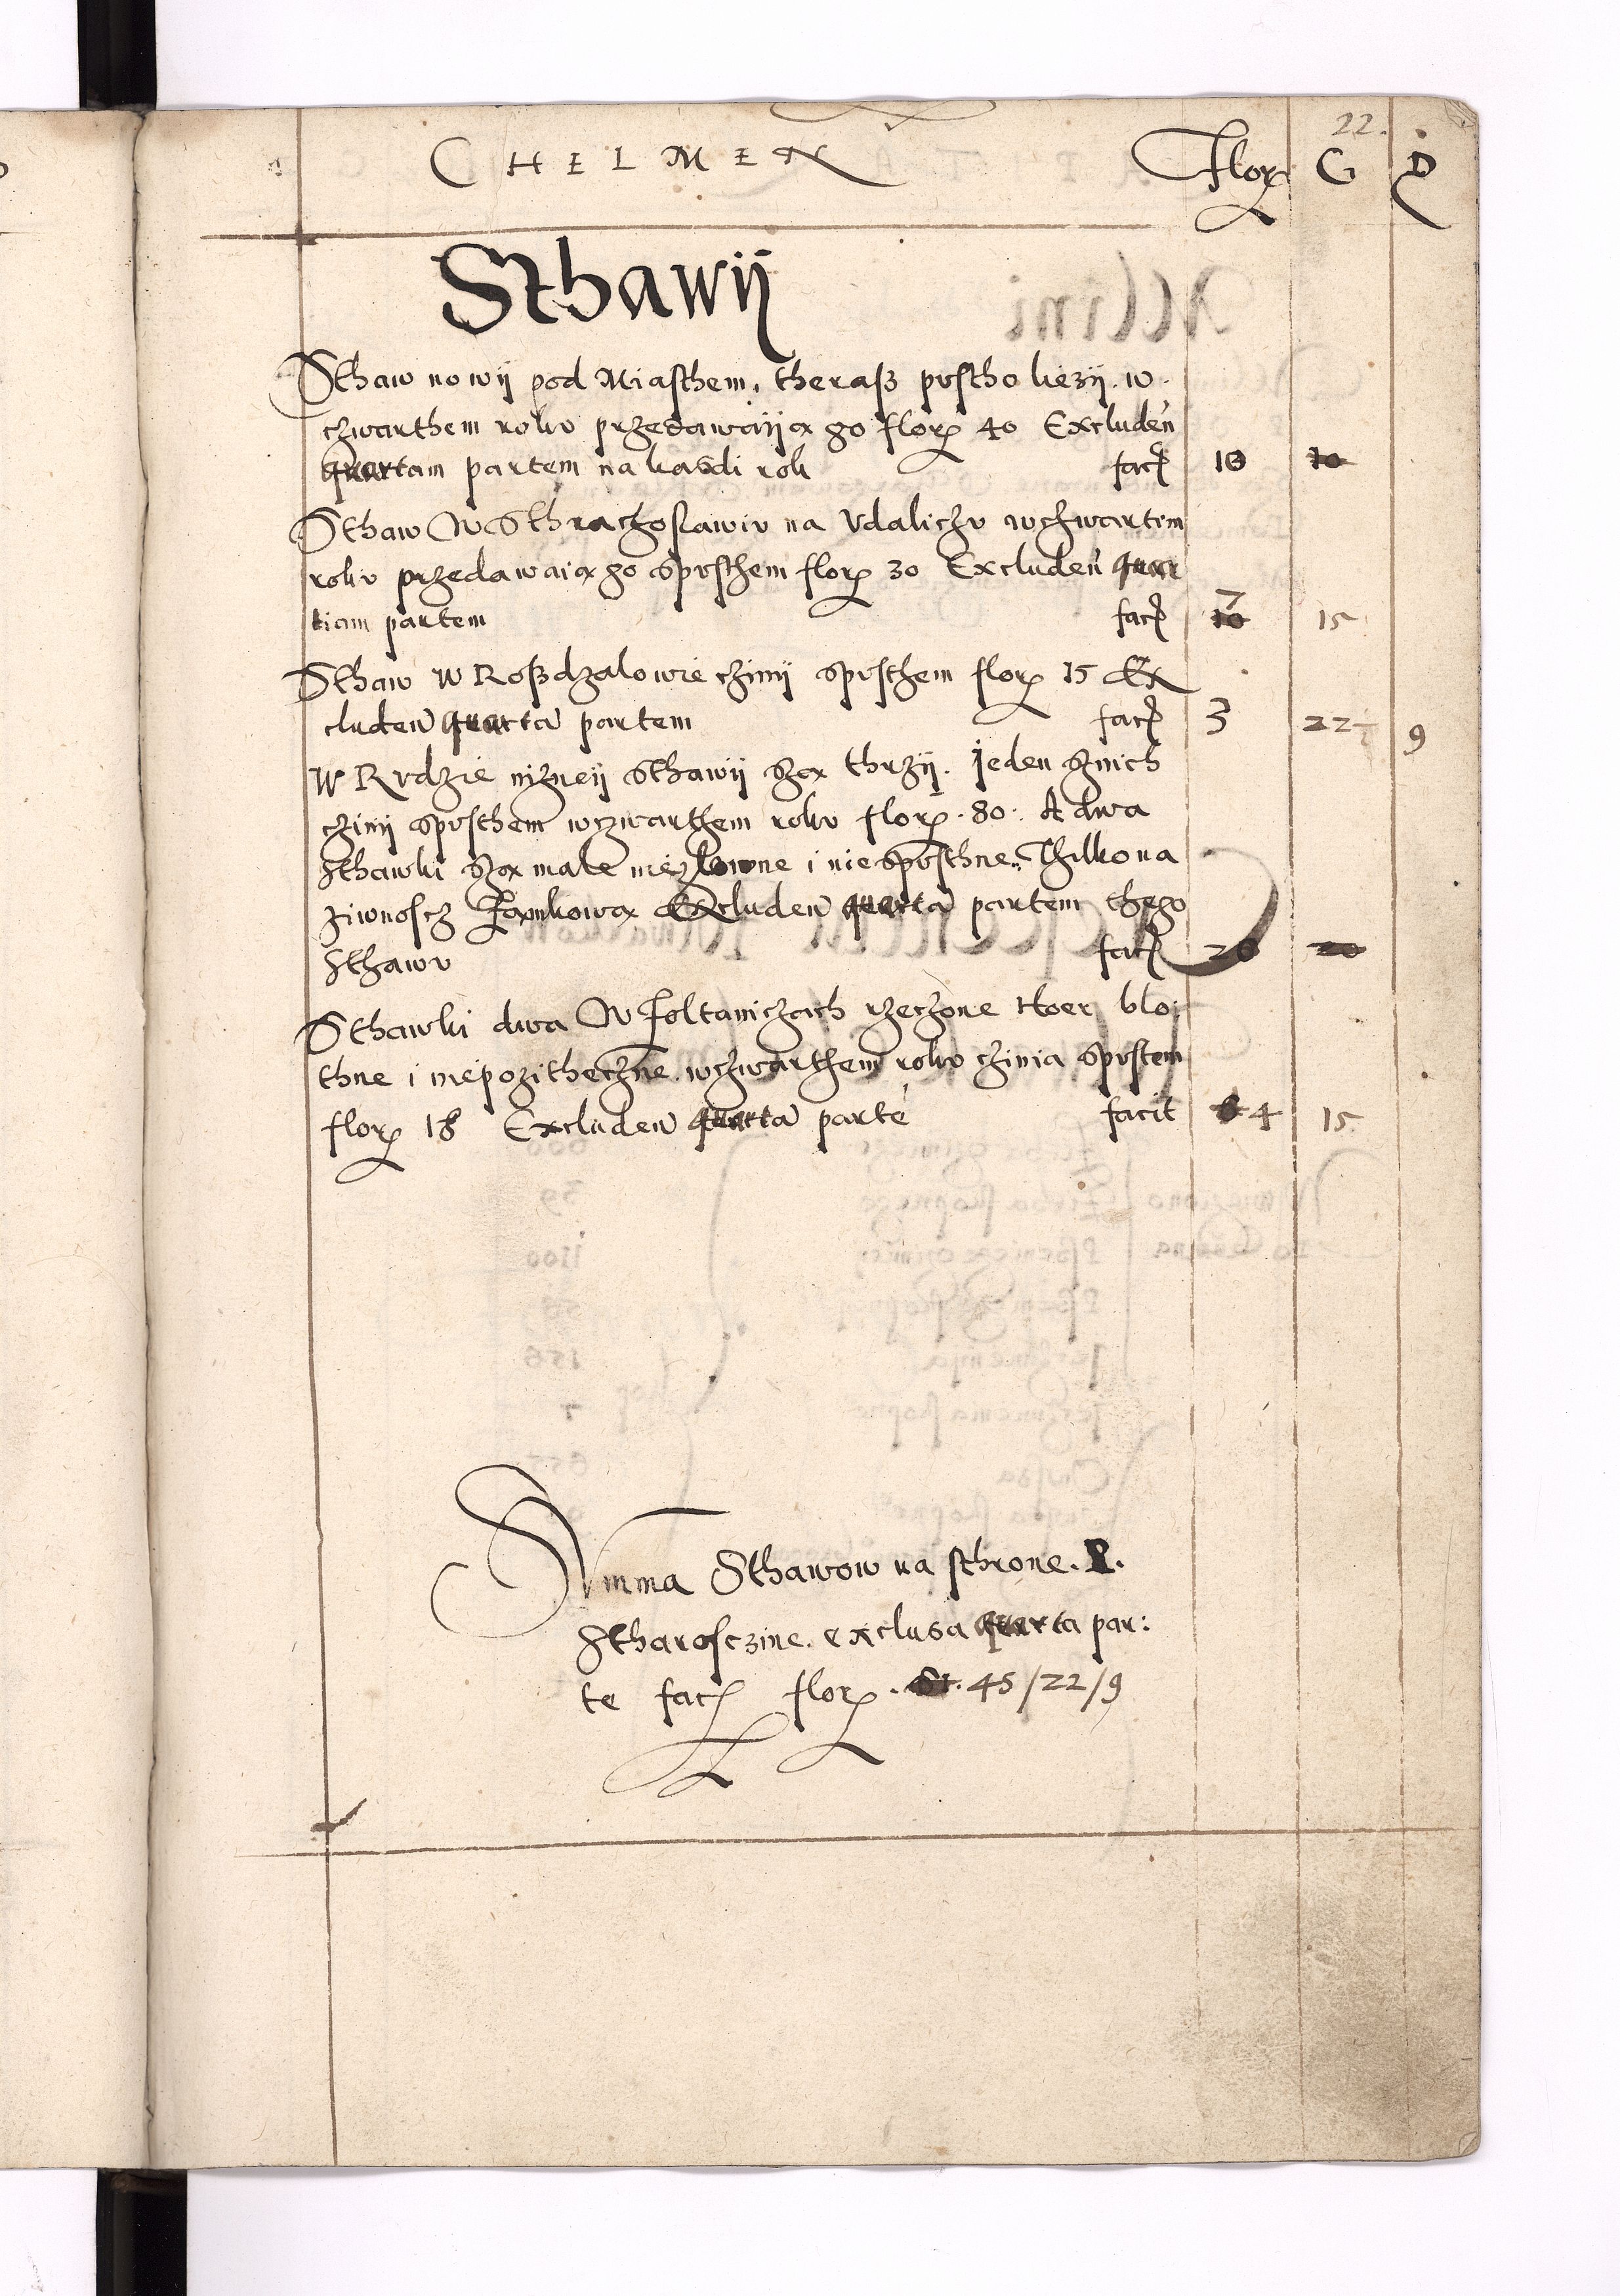 22.
CHELMEN Flor G D
Sthawÿ
Sthaw nowÿ pod Miasthem, theraß pvstho liezÿ. w.
czwarthem rokv przedawaÿą go flor 40 Excluden̄
quartam partem na kasdi rok facȷ̄ 10
Sthaw W Sthraczoslawiv na Vdaliczv wczwartem
rokv przedawaią go spvsthem flor 30 Excluden̄ quar
tam partem facȷ̄ 7 15
Sthaw W Roßdzalowie czinÿ spvsthem flor 15 Ex
cluden̄ quarta partem facȷ̄ 3 22 9
W Rvdzie nizneÿ Sthawÿ Szą thrzÿ. Jeden Sznich
czinÿ spvsthem wczwarthem rokv flor. 80. A dwa
Sthawki Szą male nie i niespvsthne. Thilko na
ziwnoscz Zamkową Excluden̄ quarta partem thego
Sthawv facȷ̄ 20
Sthawki dwa W Zoltaniczach rzeczone blo:
thne i niepozitheczne. wczwarthem rokv czinia spvstem
flor 18 Excluden̄ quarta parte facit 4 15
Svmma Sthawow na sthrone. P.
Stharosczine. exclusa quarta par:
te facȷ̄ flor. 45/22/9